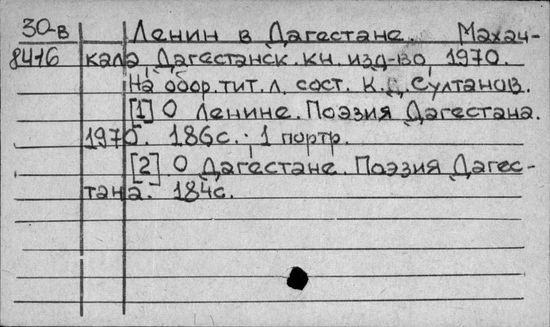 30-в Ленин в Дагестане. Махач-
8416 кала, Дагестанск. кн. изд-во, 1970.
На обор. тит. л. сост. К.Д. Султанов.
[1] О Ленине. Поэзия Дагестана.
1970. 186с.; 1 портр.
[2] О Дагестане. Поэзия Дагес-
тана. 184с.